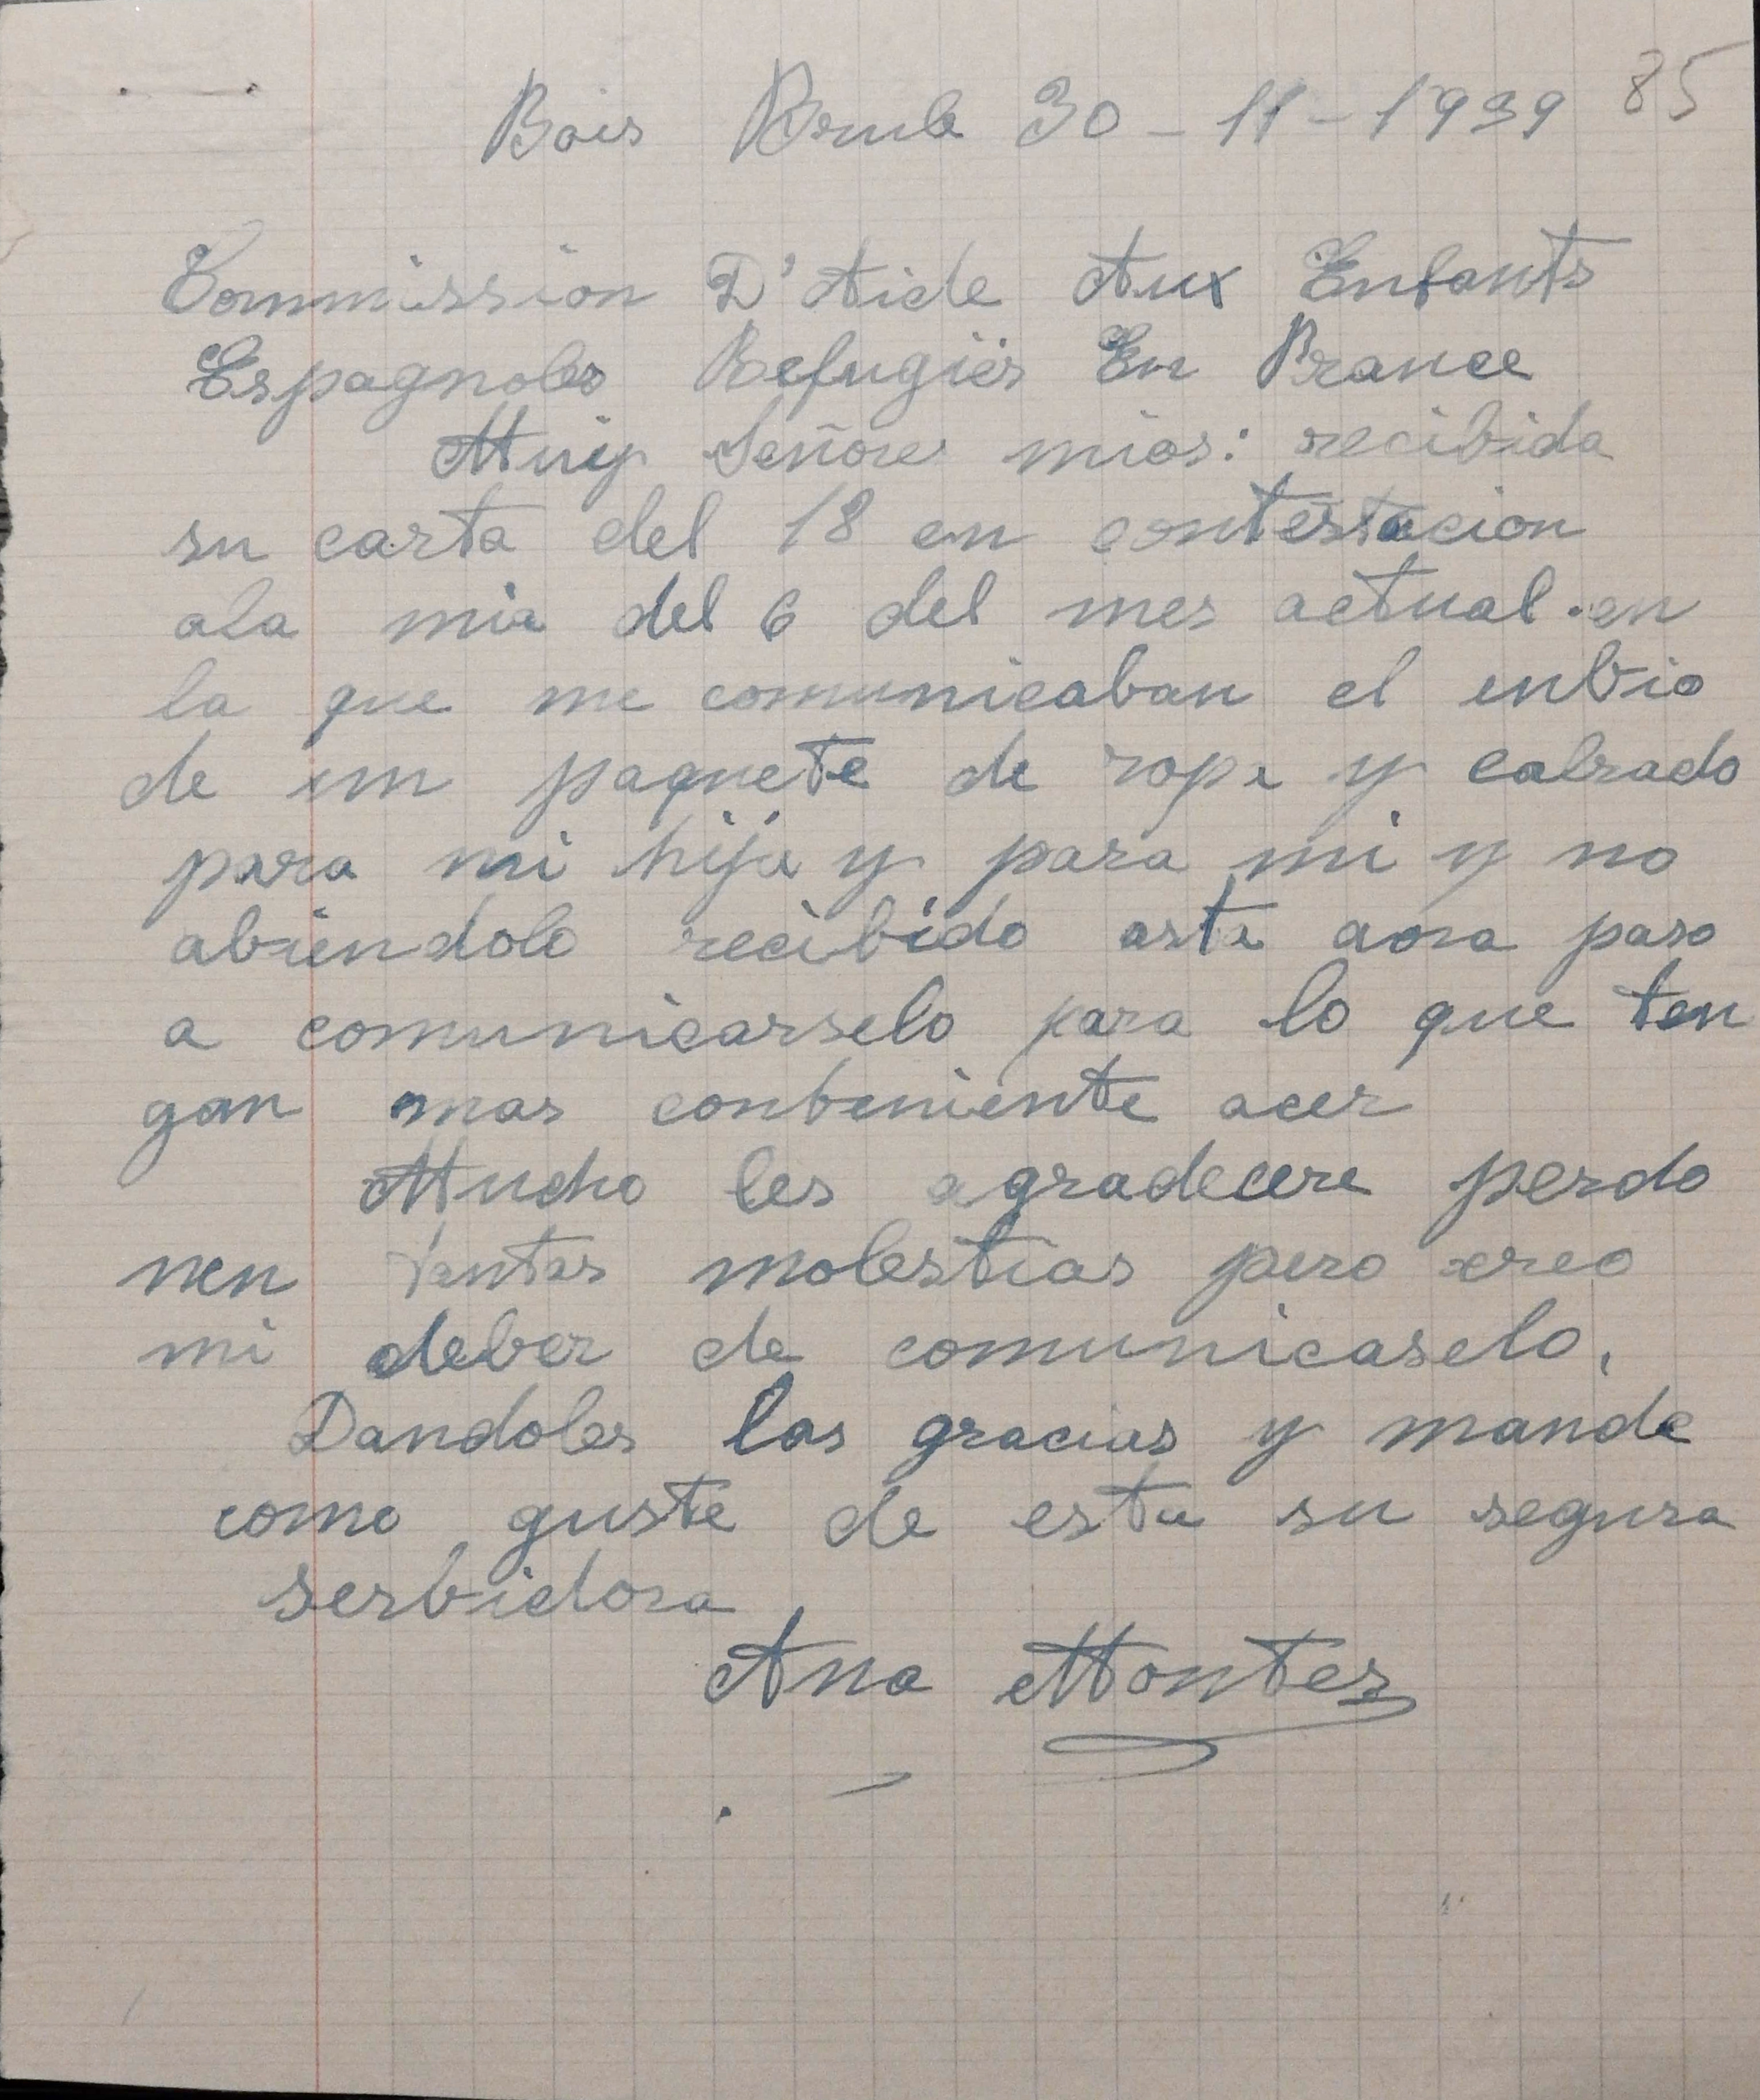 Bois Brule 30-11-1939 85
Commission D'Aide Aux Enfants
Espagnoles Refugiés En France
Muy Señores mios: recibida
su carta del 18 en contestacion
ala mia del 6 del mes actual. en
la que me comunicaban el enbio
de un paquete de ropa y calzado
para mi hija y para mi y no
abiendolo recibido asta aora paso
a comunicarselo para lo que ten
gan mas conbeniente acer
Mucho les agradecere perdo
nen tantas molestias pero creo
mi deber de comunicaselo,
Dandoles las gracias y mande
como guste de esta su segura
serbidora
Ana Montes